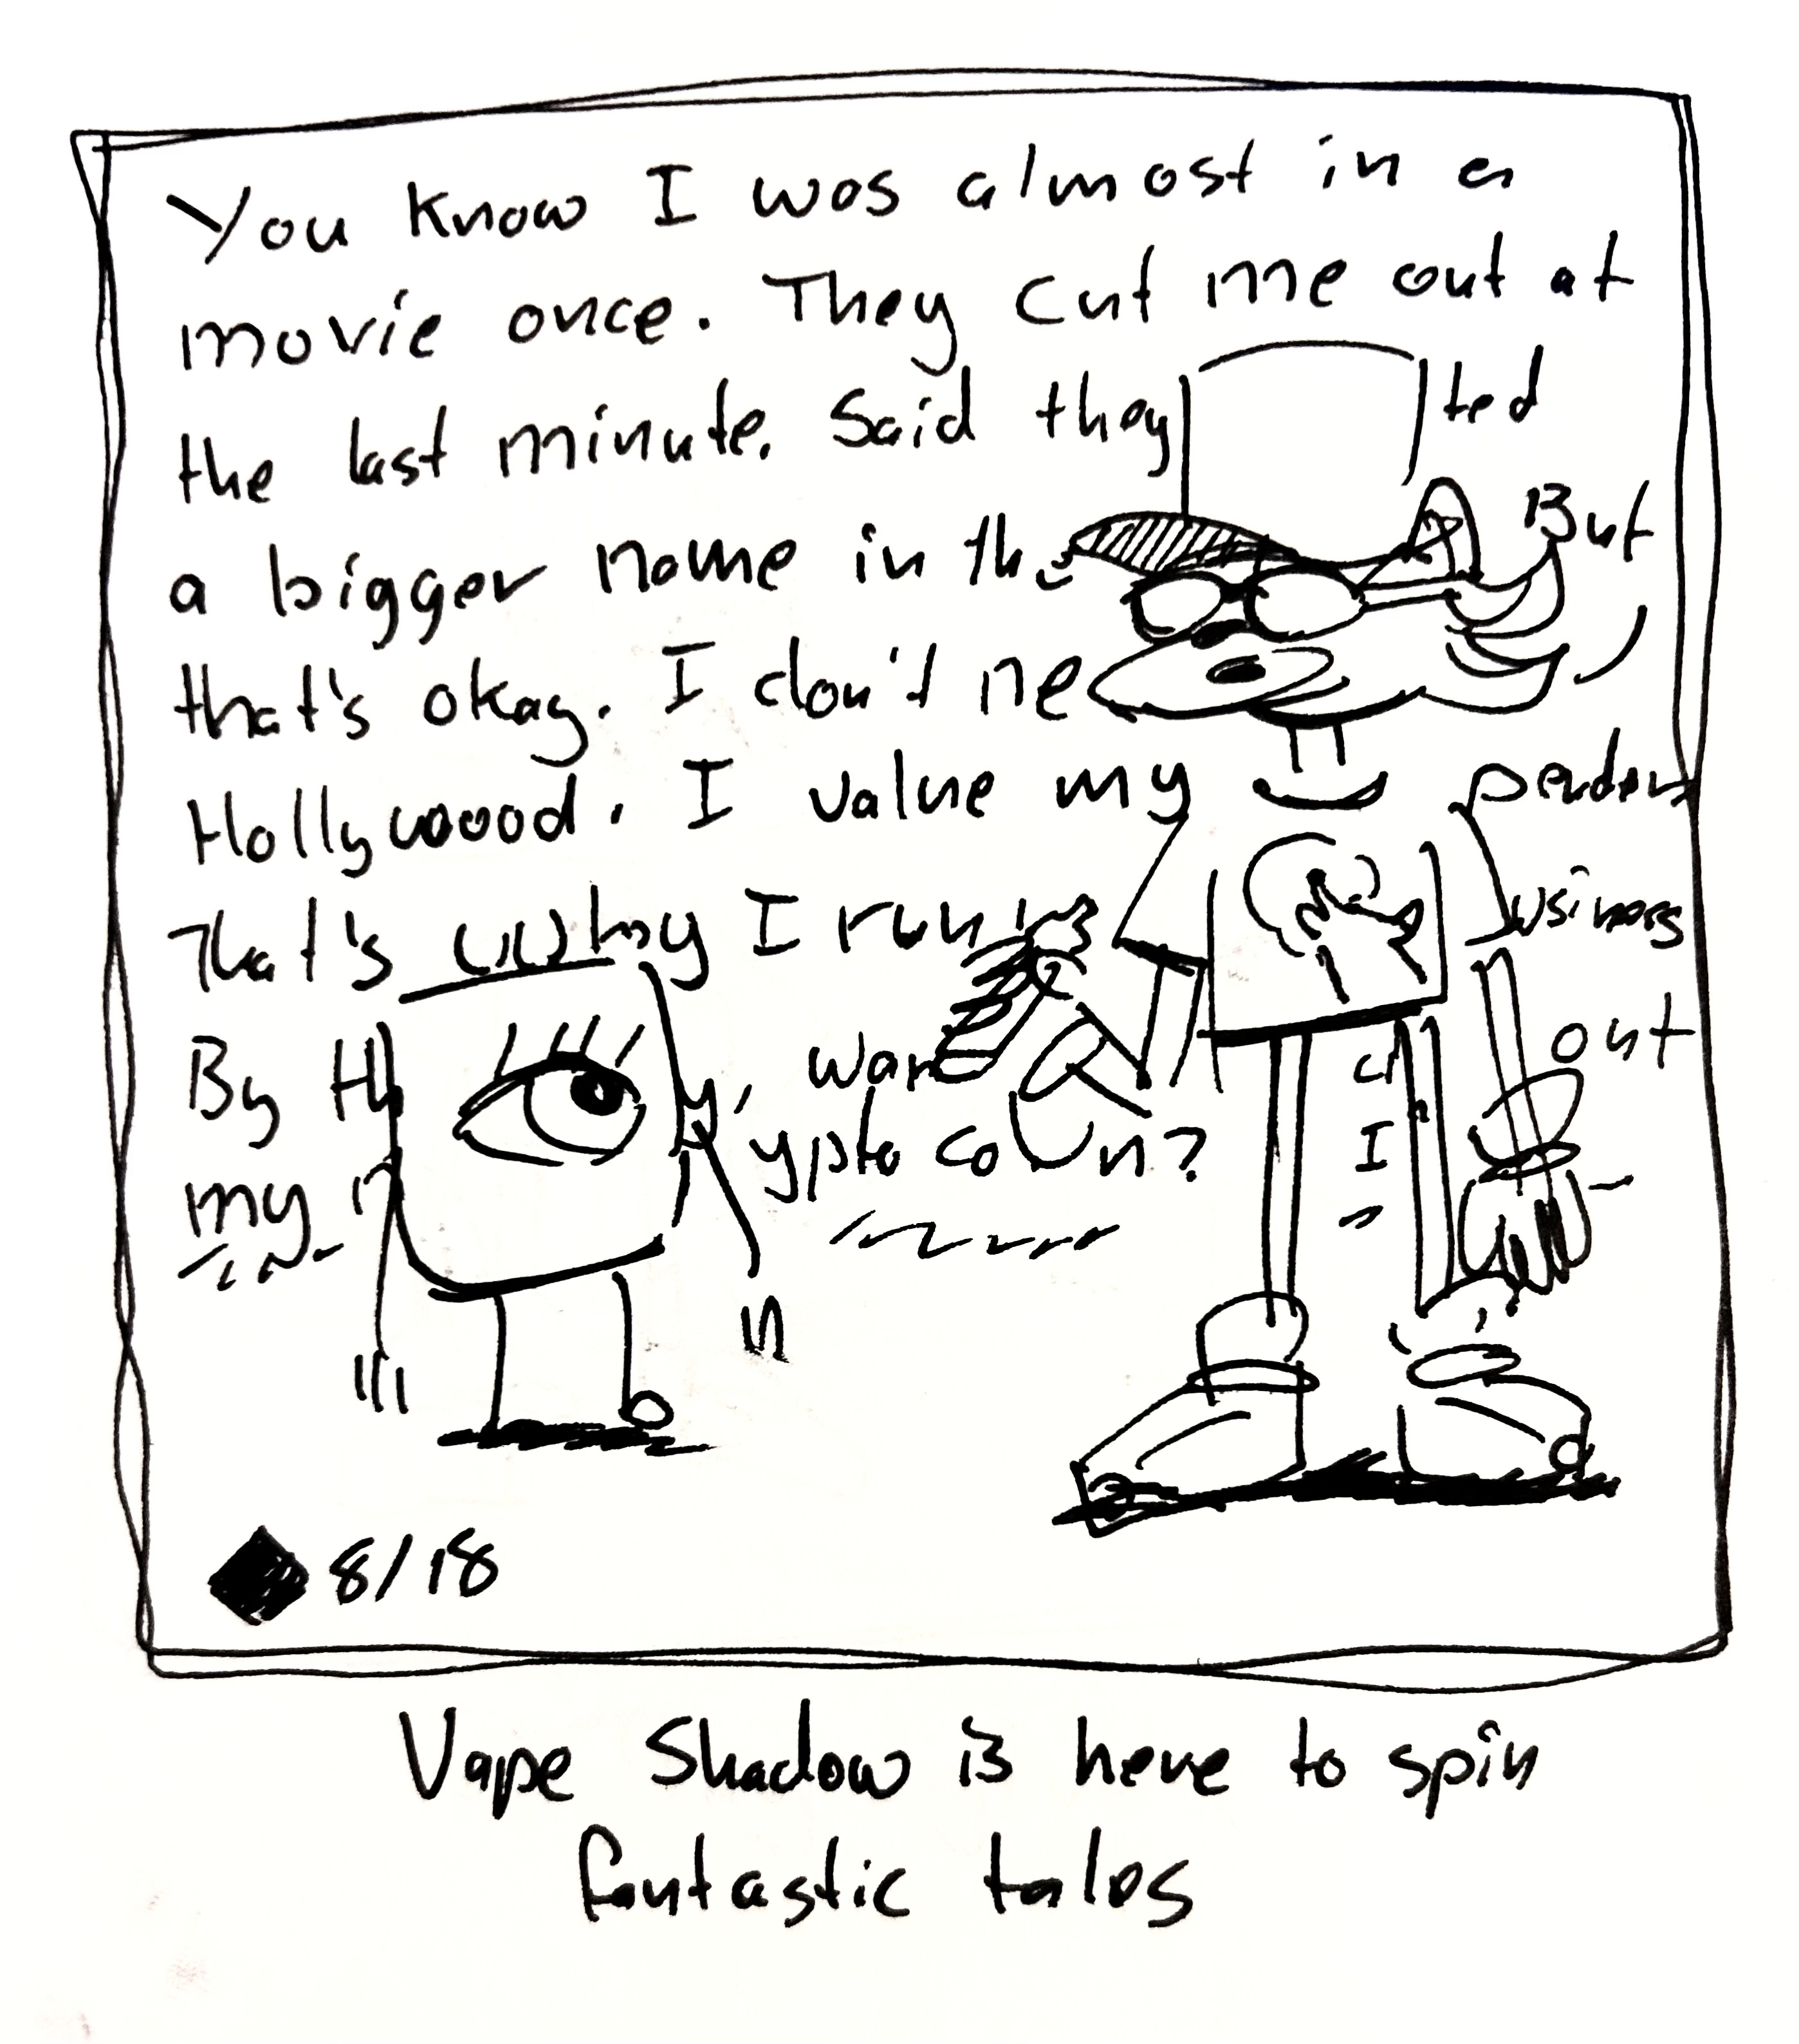 You know I was almost in a
movie once. They cut me out at
the last minute. Said they ted
a bigger name in the But
that's okay. I don't ne
Hollywoood. I value my penden
That's why I run my usiness
By th y, wan out
my ypto co n? I
8/18
Vape Shadow is here to spin
fantastic tales